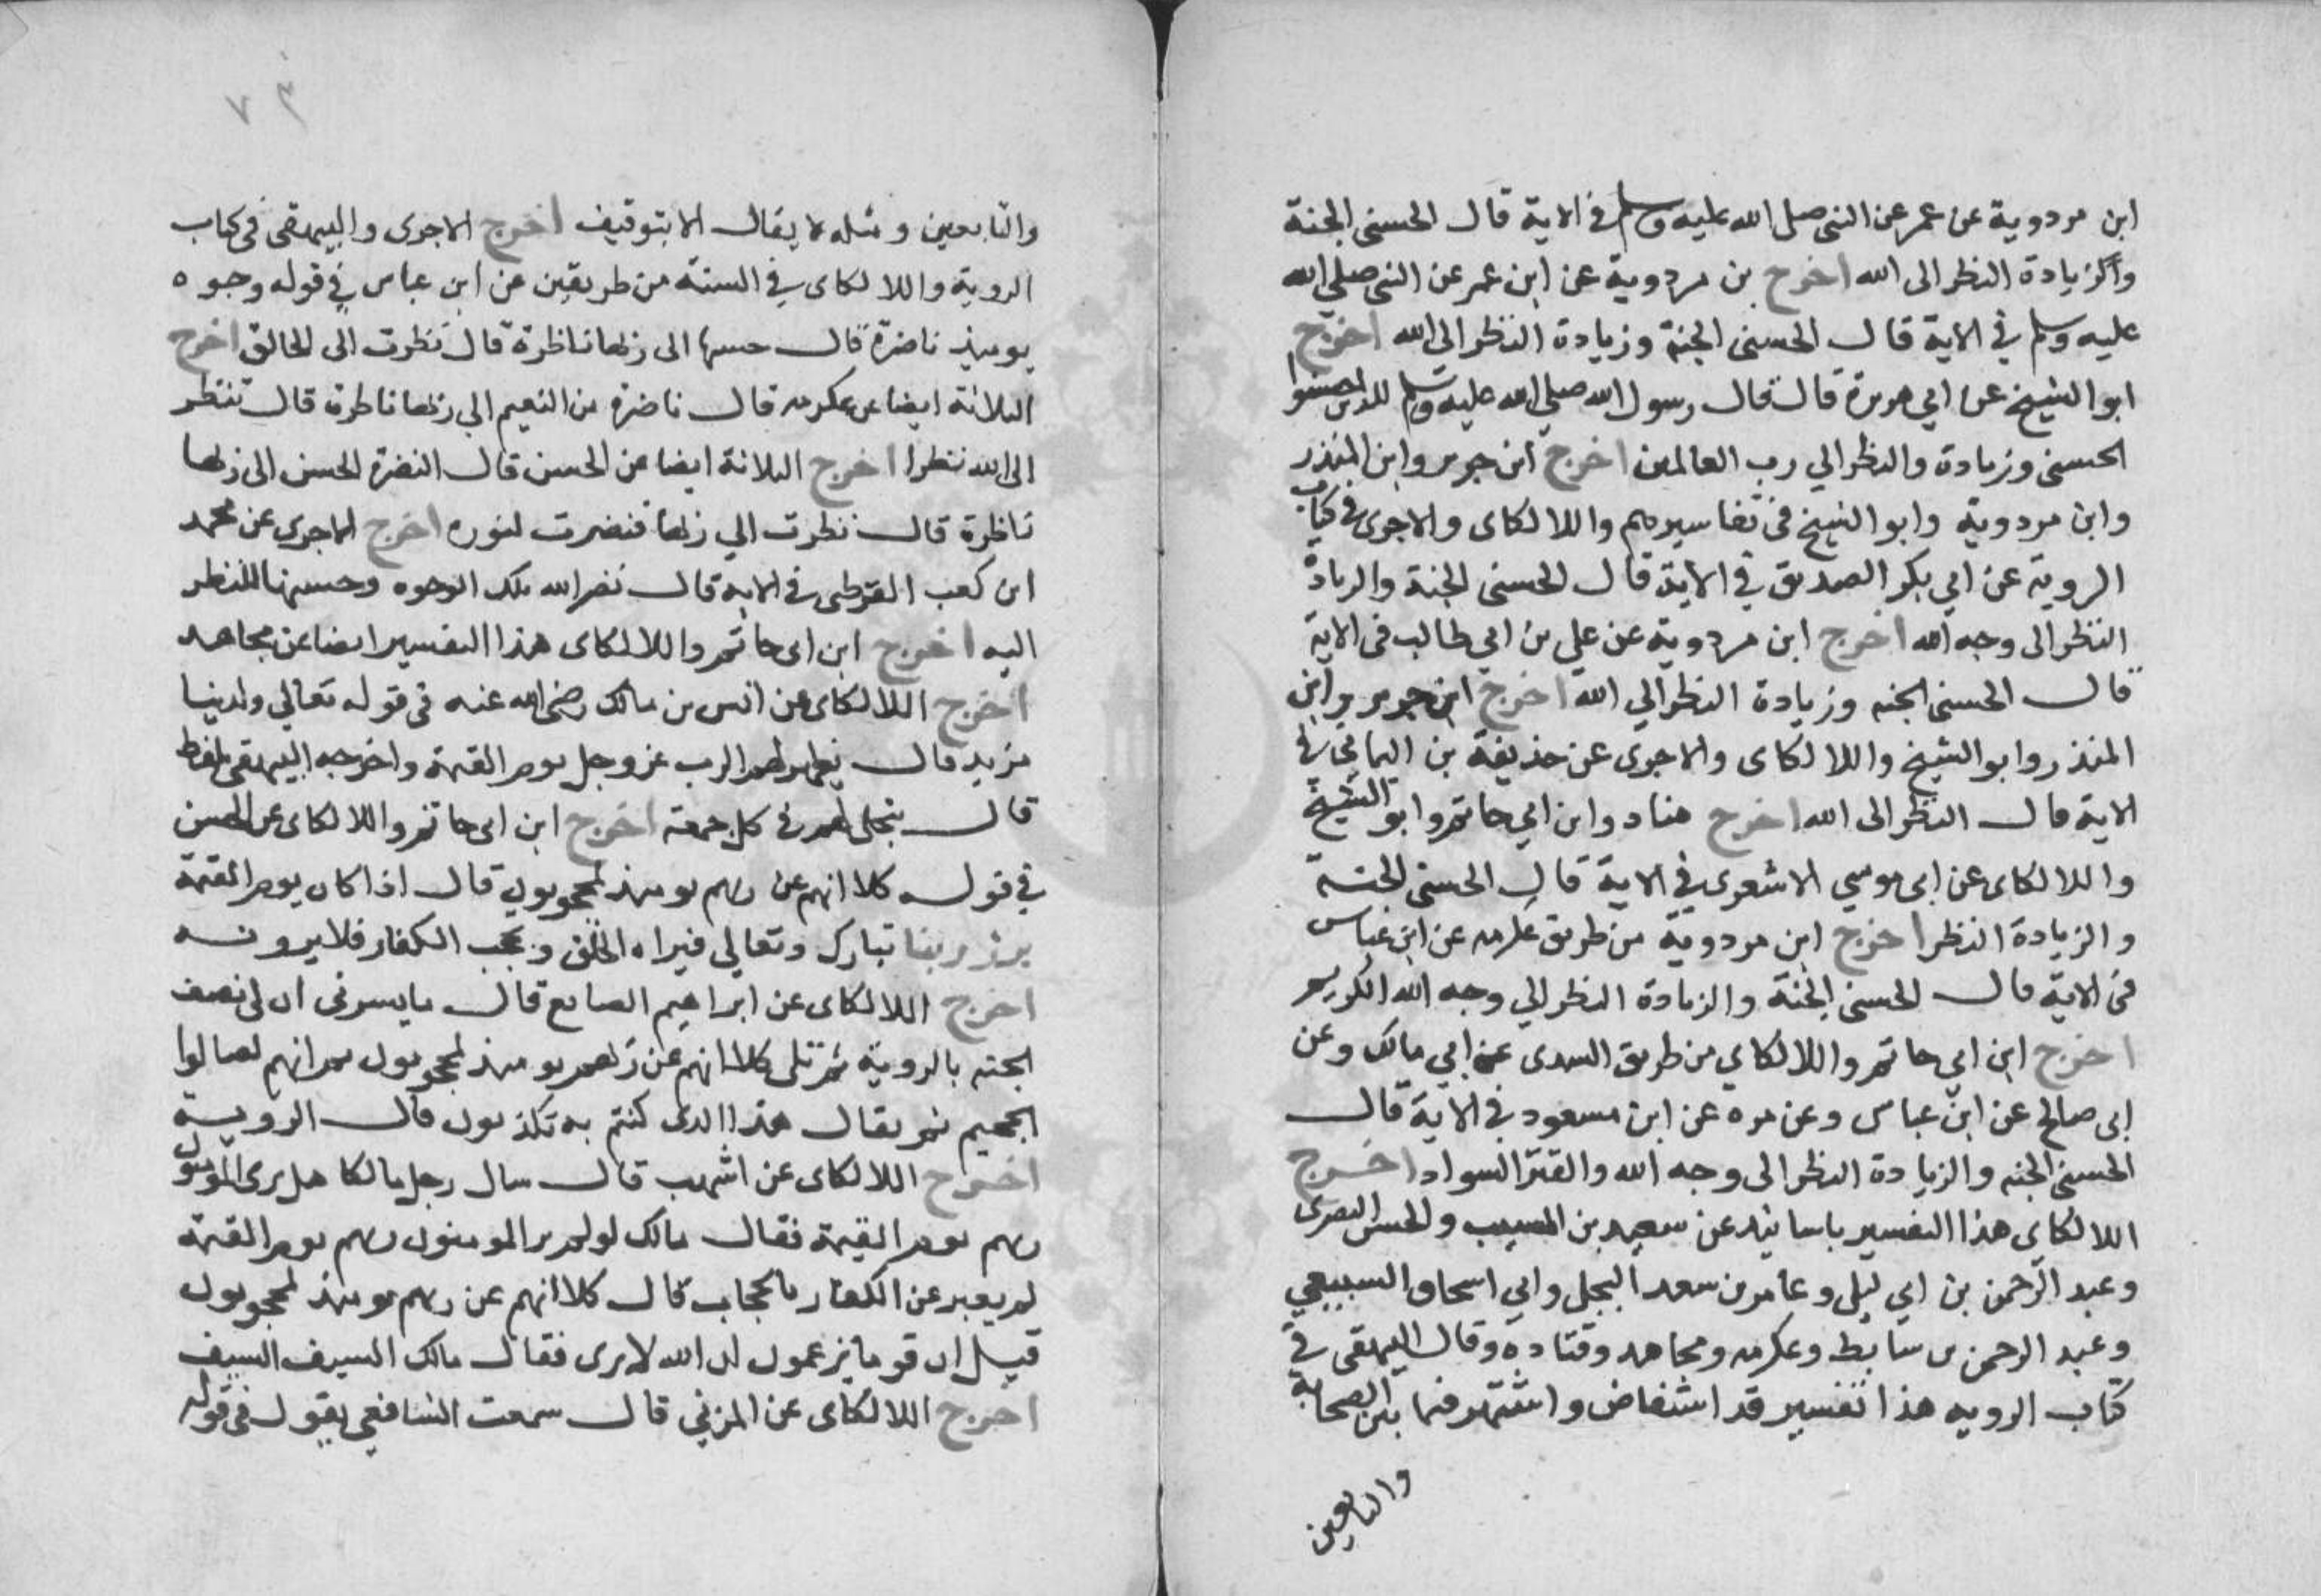 ابن مردوية عن عمر عن النبى صلى الله عليه وسلم فى الاية قال الحسنى الجنة
والزيادة النظر الى الله اخرج بن مردوية عن ابن عمر عن النبى صلي الله
عليه وسلم في الاية قال الحسنى الجنة وزيادة النظر الى الله اخرج
ابو الشيخ عن ابي هريرة قال قال رسول الله صلي الله عليه وسلم للذين احسنوا
الحسنى وزيادة والنظر الي رب العالمين اخرج ابن جرير وابن المنذر
وابن مردوية وابو الشيخ فى تفاسيرهم واللالكاى والاجرى فى كتاب
الروية عن ابي بكر الصديق في الاية قال الحسنى الجنة والزيادة
النظر الى وجه الله اخرج ابن مردوية عن علي بن ابي طالب فى الاية
قال الحسنى الجنه وزيادة النظر الي الله اخرج ابن جرير وابن
المنذر وابو الشيخ واللالكاى والاجرى عن حذيفة بن اليمانى فى
الاية قال النظر الى الله اخرج هناد وابن ابي حاتم وابو الشيخ
واللالكاى عن ابى موسي الاشعرى في الاية قال الحسنى الجنة
والزيادة النظر اخرج ابن مردوية من طريق عكرمه عن ابن عباس
فى الاية قال الحسنى الجنة والزيادة النظر الي وجه الله الكريم
اخرج ابن ابي حاتم واللالكاي من طريق السدى عن ابي مالك وعن
ابى صالح عن ابن عباس وعن مره عن ابن مسعود في الاية قال
الحسنى الجنه والزيادة النظر الى وجه الله والقتر السواد اخرج
اللالكاى هذا التفسير باسانيد عن سعيد بن المسيب والحسن البصرى
وعبد الرحمن بن ابي ليلى وعامر بن سعد البجلى وابي اسحاق السبيعي
وعبد الرحمن بن سابط وعكرمه ومجاهد وقتاده وقال البيهقى في
كتاب الرويه هذا تفسير قد استفاض واشتهر فيما بين الصحابة
والتابعين
٧٣
والتابعين ومثله لا يقال الا بتوقيف اخرج الاجرى والبيهقى فى كتاب
الروية واللالكاى في السنة من طريقين عن ابن عباس في قوله وجوه
يوميذ ناضرة قال حسنها الى ربها ناظرة قال نظرت الى الخالق اخرج
الثلاثة ايضا عن عكرمه قال ناضرة من النعيم الي ربها ناظرة قال تنظر
الى الله نظرا اخرج الثلاثة ايضا عن الحسن قال النضرة الحسن الى ربها
ناظرة قال نظرت الي ربها فنضرت لنوره اخرج الاجرى عن محمد
ابن كعب القرظى فى الاية قال نضر الله تلك الوجوه وحسنها للنظر
اليه اخرج ابن ابى حاتم واللالكاى هذا التفسير ايضا عن مجاهد
اخرج اللالكاى عن انس بن مالك رضى الله عنه فى قوله تعالي ولدينا
مزيد قال يظهر لهم الرب عز وجل يوم القيمة واخرجه البيهقى بلفظ
قال يتجلى لهم فى كل جمعة اخرج ابن ابى حاتم واللالكاى عن الحسن
في قوله كلا انهم عن ربهم يوميذ لمحجوبون قال اذا كان يوم القيمة
برز ربنا تبارك وتعالي فيراه الخلق ويحجب الكفار فلا يرونه
اخرج اللالكاى عن ابراهيم الصايغ قال ما يسرنى ان لى نصف
الجنه بالروية ثم تلى كلا انهم عن ربهم يوميذ لمحجوبون ثم انهم لصالوا
الجحيم ثم يقال هذا الذى كنتم به تكذبون قال الروية
اخرج اللالكاى عن اشهب قال سال رجل مالكا هل يرى المومنون
ربهم يوم القيمة فقال مالك لو لم ير المومنون ربهم يوم القيمة
لم يعير عن الكفار بالحجاب قال كلا انهم عن ربهم يوميذ لمحجوبون
قيل ان قوما يزعمون ان الله لا يرى فقال مالك السيف السيف
اخرج اللالكاى عن المزني قال سمعت الشافعي يقول فى قوله